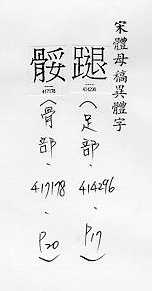 宋體母稿異體字
蹆
414296
(足部．414296．P17)
骽
417178
(骨部．417178．P20)